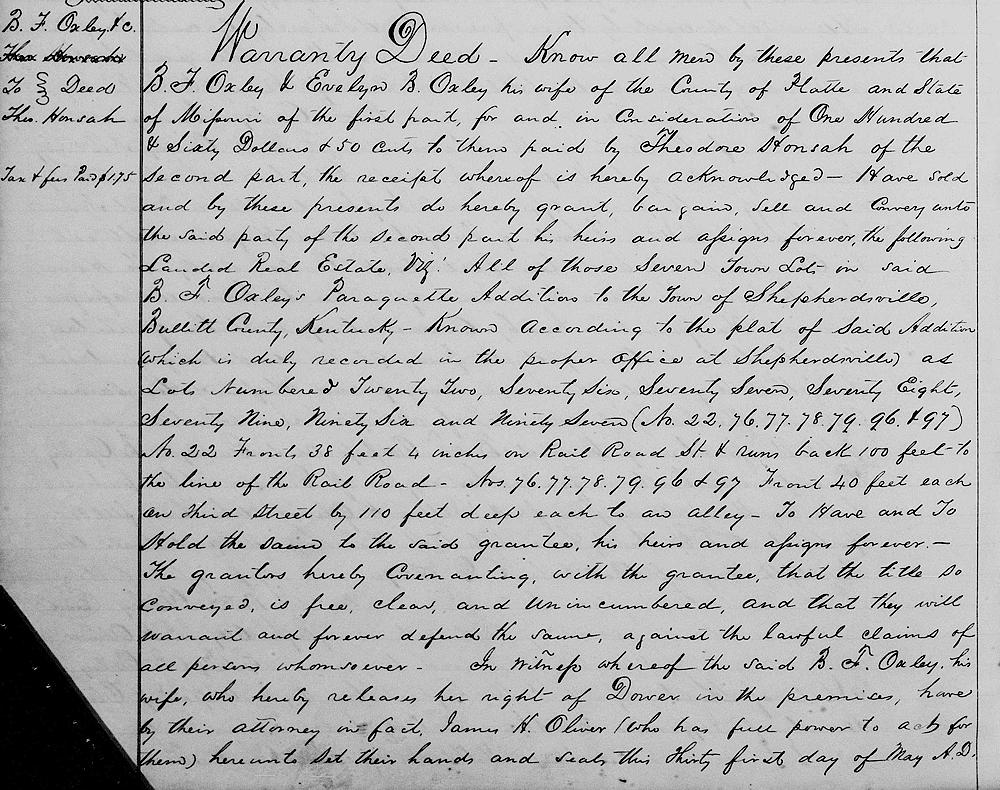 B. F. Oxley &c.
To } Deed
Theo. Honsah
Tax & fees Paid $1.75
Warranty Deed - Know all men by these presents that
B. F. Oxley & Evelyn B. Oxley his wife of the County of Platte and State
of Missouri of the first part, for and in Consideration of One Hundred
& Sixty Dollars & 50 cents to them paid by Theodore Honsah of the
Second part, the receipt whereof is hereby acknowledged - Have sold
and by these presents do hereby grant, bargain, sell and Convey unto
the said party of the second part his heirs and assigns forever, the following
Landed Real Estate, Viz: All of those Seven Town Lots in said
B. F. Oxley's Paraquette Addition to the Town of Shepherdsville,
Bullitt County, Kentucky - Known according to the plat of Said Addition
(which is duly recorded in the proper office at Shepherdsville) as
Lots Numbered Twenty Two, Seventy Six, Seventy Seven, Seventy Eight,
Seventy Nine, Ninety Six and Ninety Seven (No. 22. 76. 77. 78. 79. 96. & 97)
No. 22 Fronts 38 feet 4 inches on Rail Road St. & runs back 100 feet to
the line of the Rail Road - Nos. 76. 77. 78. 79. 96 & 97 Front 40 feet each
on Third Street by 110 feet deep each to an alley - To Have and To
Hold the same to the said grantee, his heirs and assigns forever. -
The grantors hereby Covenanting, with the grantee, that the title so
Conveyed, is free, clear, and unincumbered, and that they will
warrant and forever defend the same, against the lawful claims of
all persons whomsoever - In Witness whereof the said B. F. Oxley, his
wife, who hereby releases her right of Dower in the premises, have
by their attorney in fact, James H. Oliver (who has full power to act for
them) hereunto set their hands and seals this Thirty first day of May A.D.